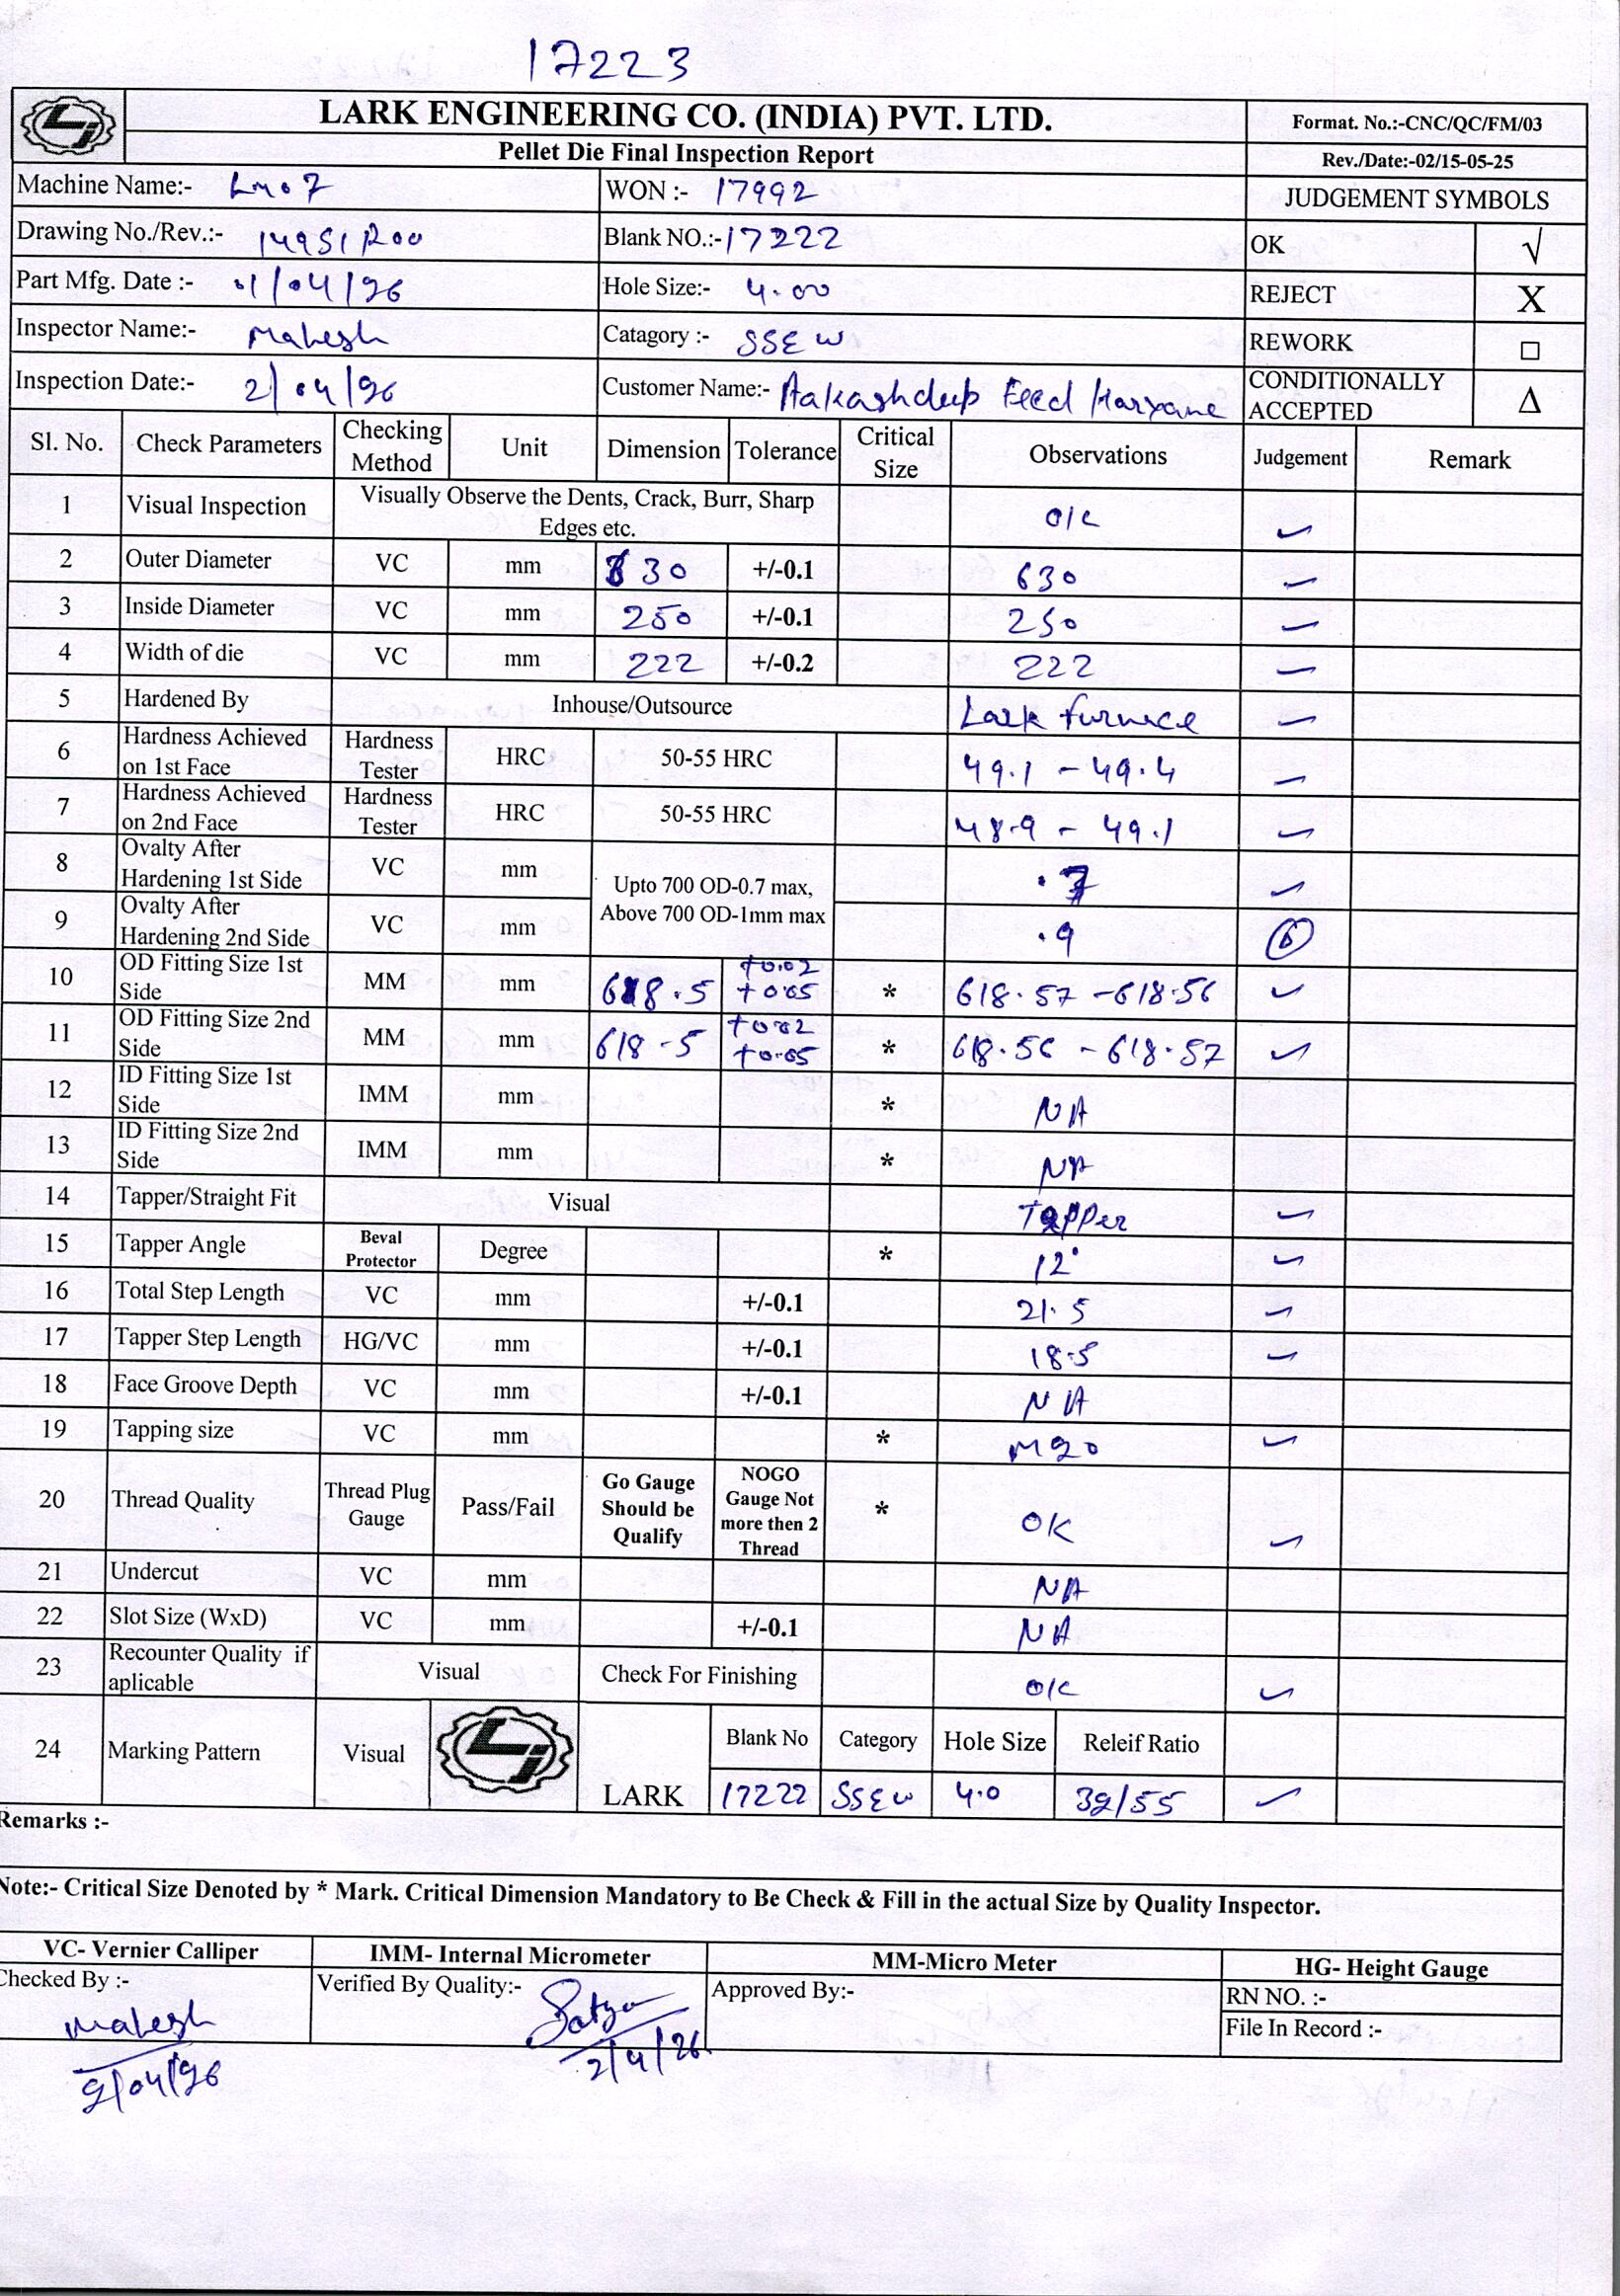 17223
LARK ENGINEERING CO. (INDIA) PVT. LTD.
Format. No.:-CNC/QC/FM/03
Pellet Die Final Inspection Report
Rev./Date:-02/15-05-25
Machine Name:- Lm07
WON :- 17992
JUDGEMENT SYMBOLS
Drawing No./Rev.:- 14951 R00
Blank NO.:- 17222
OK √
Part Mfg. Date :- 01/04/26
Hole Size:- 4.00
REJECT X
Inspector Name:- Mahesh
Catagory :- SSEW
REWORK □
Inspection Date:- 2/04/26
Customer Name:- Aakashdeep Feed Haryane
CONDITIONALLY ACCEPTED Δ
Sl. No. Check Parameters Checking Method Unit Dimension Tolerance Critical Size Observations Judgement Remark
1 Visual Inspection Visually Observe the Dents, Crack, Burr, Sharp Edges etc. O/K ✓
2 Outer Diameter VC mm 630 +/-0.1 630 ✓
3 Inside Diameter VC mm 250 +/-0.1 250 ✓
4 Width of die VC mm 222 +/-0.2 222 ✓
5 Hardened By Inhouse/Outsource Lark furnace ✓
6 Hardness Achieved on 1st Face Hardness Tester HRC 50-55 HRC 49.1 - 49.4 ✓
7 Hardness Achieved on 2nd Face Hardness Tester HRC 50-55 HRC 48.9 - 49.1 ✓
8 Ovalty After Hardening 1st Side VC mm Upto 700 OD-0.7 max, Above 700 OD-1mm max .7 ✓
9 Ovalty After Hardening 2nd Side VC mm .9
10 OD Fitting Size 1st Side MM mm 618.5 +0.02 +0.05 * 618.57 - 618.56 ✓
11 OD Fitting Size 2nd Side MM mm 618.5 +0.02 +0.05 * 618.56 - 618.57 ✓
12 ID Fitting Size 1st Side IMM mm * NA
13 ID Fitting Size 2nd Side IMM mm * NA
14 Tapper/Straight Fit Visual Tapper ✓
15 Tapper Angle Beval Protector Degree * 12° ✓
16 Total Step Length VC mm +/-0.1 21.5 ✓
17 Tapper Step Length HG/VC mm +/-0.1 18.5 ✓
18 Face Groove Depth VC mm +/-0.1 NA
19 Tapping size VC mm * M20 ✓
20 Thread Quality Thread Plug Gauge Pass/Fail Go Gauge Should be Qualify NOGO Gauge Not more then 2 Thread * OK ✓
21 Undercut VC mm NA
22 Slot Size (WxD) VC mm +/-0.1 NA
23 Recounter Quality if aplicable Visual Check For Finishing O/K ✓
24 Marking Pattern Visual LARK Blank No Category Hole Size Releif Ratio
17222 SSEW 4.0 32/55 ✓
Remarks :-
Note:- Critical Size Denoted by * Mark. Critical Dimension Mandatory to Be Check & Fill in the actual Size by Quality Inspector.
VC- Vernier Calliper IMM- Internal Micrometer MM-Micro Meter HG- Height Gauge
Checked By :- Mahesh 2/04/26
Verified By Quality:- Satya 2/4/26
Approved By:-
RN NO. :-
File In Record :-